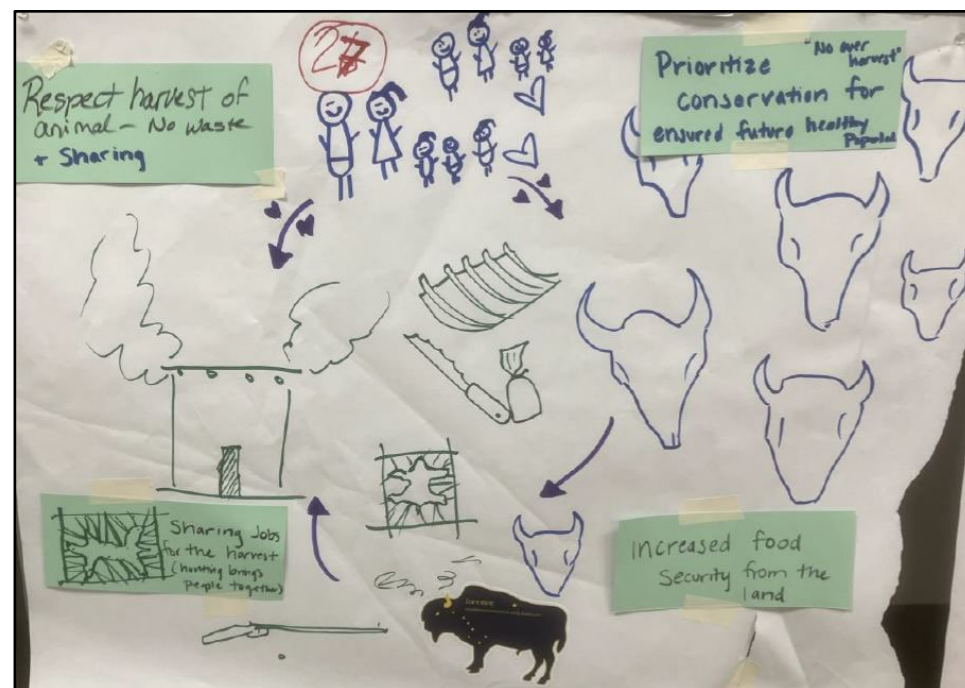 Respect harvest of
animal – No waste
+ Sharing
Prioritize "No over
harvest"
conservation for
ensured future healthy
Sharing Jobs
for the harvest
(hunting brings
people together)
Increased food
security from the
land